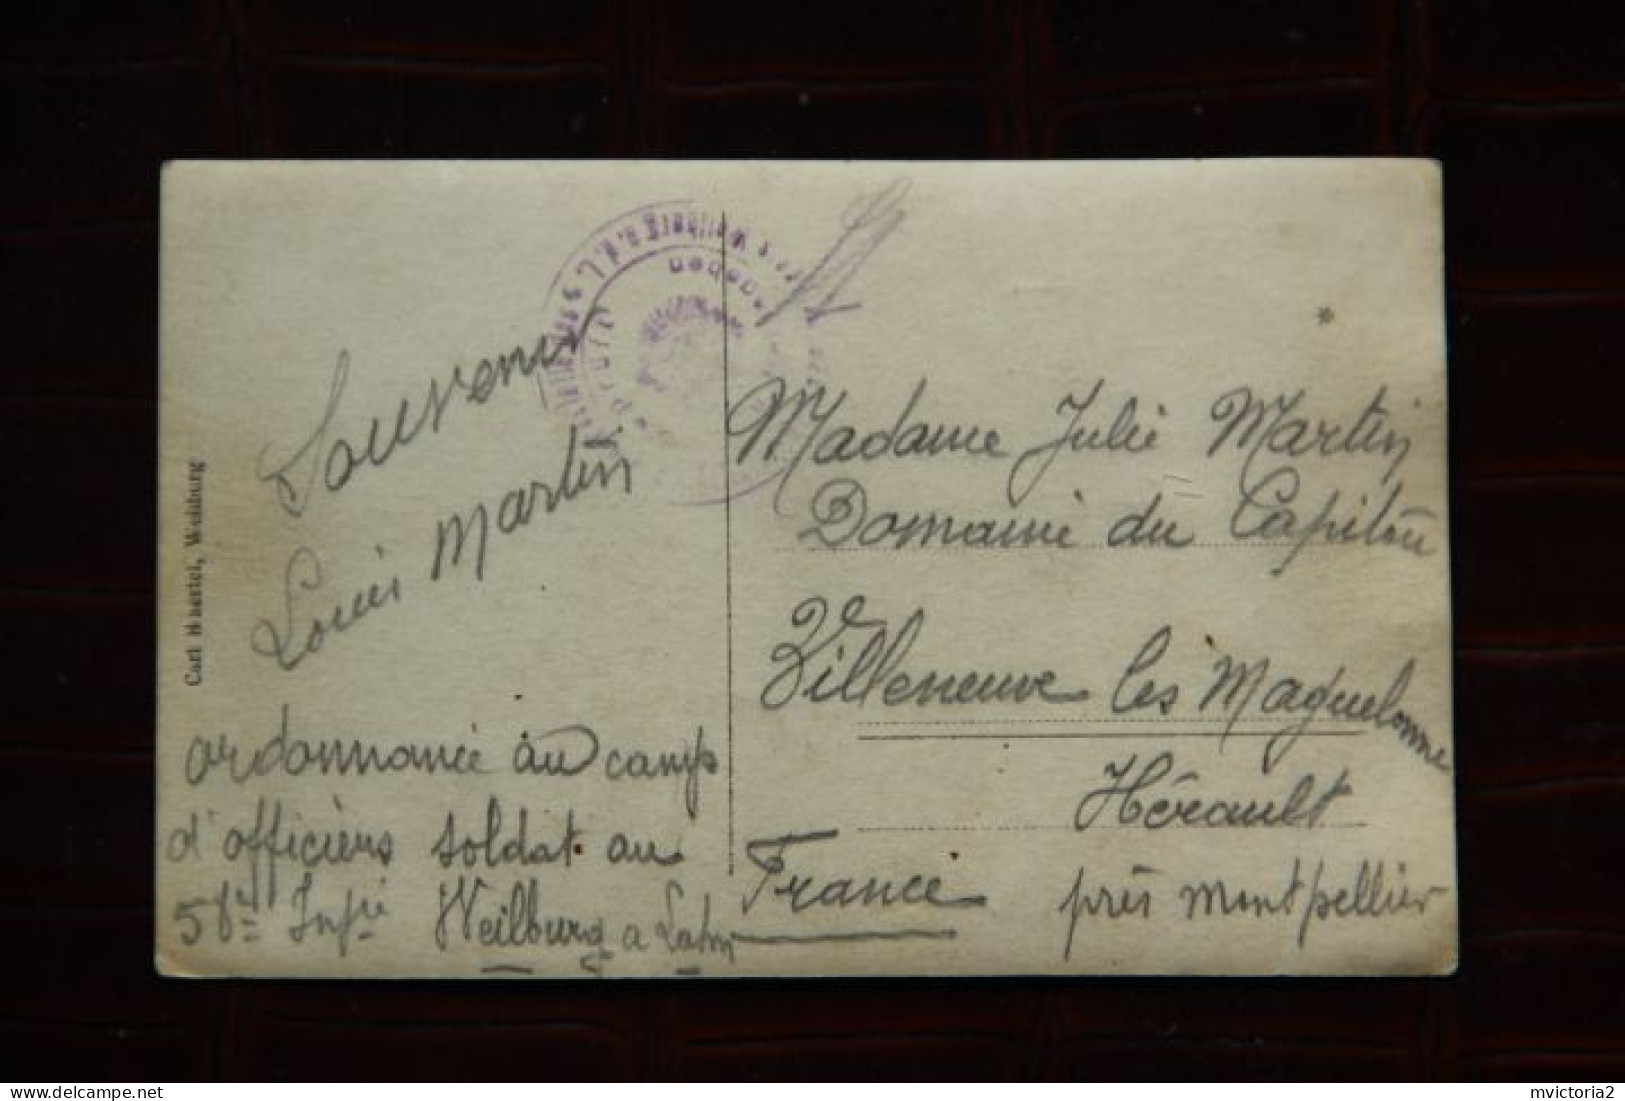 Carl Weilburg
Souvenir
Louis Martin
ordonnance au camp
d'officiers soldat au
58e Infie Weilburg a Lahn
Weilburg a. d. L.
Madame Julie Martin
Domaine du Capitou
Villeneuve les Maguelonne
Hérault
France près Montpellier
www.delcampe.net
mvictoria2